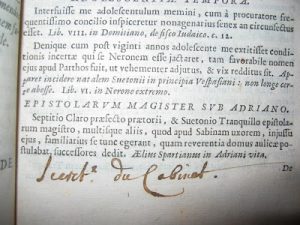 Interfuisse me adolescentulum memini, cum à procuratore fre-
quentissimo concilio inspiceretur nonagenarius senex an circunsectus
esset. Lib. VIII. in Domitiano, de fisco Iudaico. c. 12.
Denique cum post viginti annos adolescente me extitisset condi-
tionis incertæ qui se Neronem esse jactaret, tam favorabile nomen
ejus apud Parthos fuit, ut vehementer adjutus, & vix redditus sit. Ap-
paret incidere natalem Suetonii in principia Vespasiani; non longe cer-
te abesse. Lib. VI. in Nerone extremo.
EPISTOLARVM MAGISTER SVB ADRIANO.
Septitio Claro præfecto prætorii, & Suetonio Tranquillo epistola-
rum magistro, multisque aliis, quod apud Sabinam uxorem, injussu
ejus, familiarius se tunc egerant, quam reverentia domus aulicæ po-
stulabat, successores dedit. Ælius Spartianus in Adriani vita.
De
Secret.e du Cabinet.
DE